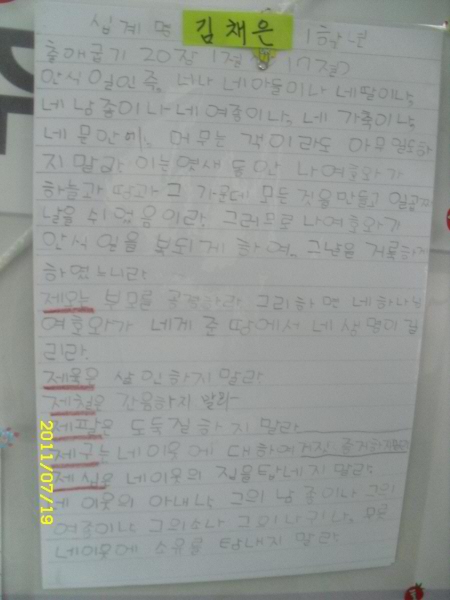 십계명 김채은 1학년
출애굽기 20장 1절 17절
안식일인즉 너나 네아들이나 네딸이나
네 남종이나 네 여종이나 네 가축이나
네 문안에 머무는 객이라도 아무 일도하
지 말라 이는엿새 동안 나여호와가
하늘과 땅과 그 가운데 모든 것을 만들고 일곱째
날을 쉬었음이라 그러므로 나여호와가
안식일을 복되게 하여 그날을 거룩하게
하였느니라
제오는 부모를 공경하라 그리하면 네하나님
여호와가 네게 준 땅에서 네 생명이 길
리라.
제육은 살인하지 말라
제칠은 간음하지 말라
제팔은 도둑질하지 말라
제구는 네이웃에 대하여 거짓 증거하지말라
제십은 네이웃의 집을탐내지 말라
네 이웃의 아내나 그의 남종이나 그의
여종이나 그의소나 그의나귀나 무릇
네이웃에 소유를 탐내지 말라
2011/07/19